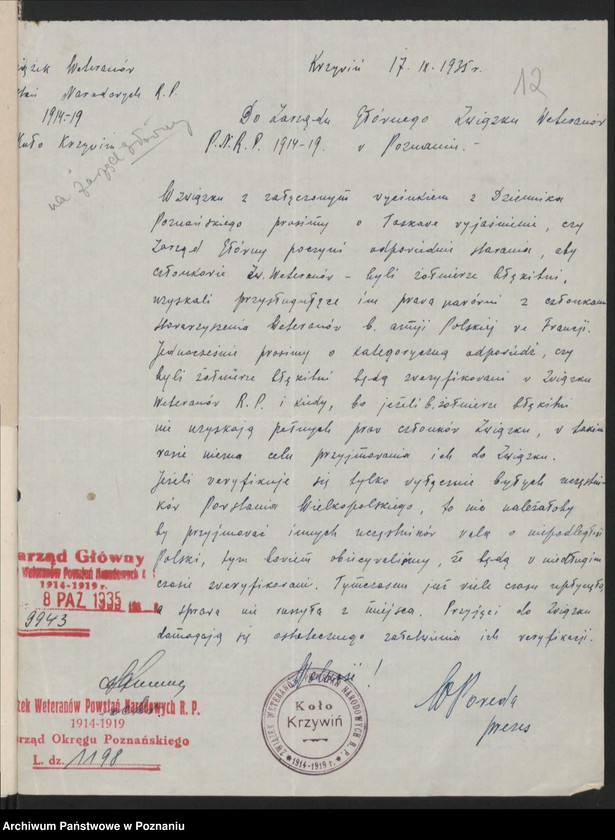 iązek Weteranów
stań Narodowych R. P.
1914-19
Koło Krzywiń
na zarząd główny
Krzywiń 17. IX. 1935 r.
12
Do Zarządu Głównego Związku Weteranów
P.N.R.P. 1914-19. w Poznaniu.-
W związku z załączonym wycinkiem z Dziennika
Poznańskiego prosimy o łaskawe wyjaśnienie, czy
Zarząd Główny poczynił odpowiednie starania, aby
członkowie Zw. Weteranów - byli żołnierze błękitni,
uzyskali przysługujące im prawa narówni z członkami
stowarzyszenia Weteranów b. armji Polskiej we Francji.
Jednocześnie prosimy o kategoryczną odpowiedź, czy
byli żołnierze błękitni będą zweryfikowani w Związku
Weteranów R. P. i kiedy, bo jeżeli b. żołnierze błękitni
nie uzyskają pełnych praw członków Związku, w takim
razie niema celu przyjmowania ich do Związku.
Jeżeli weryfikuje się tylko wyłącznie byłych uczestni-
ków Powstania Wielkopolskiego, to nie należałoby
by przyjmować innych uczestników walk o niepodległość
Polski, tym bowiem obiecywaliśmy, że będą w niedługim
czasie zweryfikowani. Tymczasem już wiele czasu upłynęło,
a sprawa nie ruszyła z miejsca. Przyjęci do Związku
domagają się ostatecznego załatwienia ich weryfikacji.
arząd Główny
Weteranów Powstań Narodowych R.
1914-1919 r.
8 PAŹ 1935
9943
ek Weteranów Powstań Narodowych R. P.
1914-1919
arząd Okręgu Poznańskiego
L. dz. 1198
ZWIĄZEK WETERANÓW POWSTAŃ NARODOWYCH R. P.
Koło
Krzywiń
1914-1919 r.
prezes
Archiwum Państwowe w Poznaniu